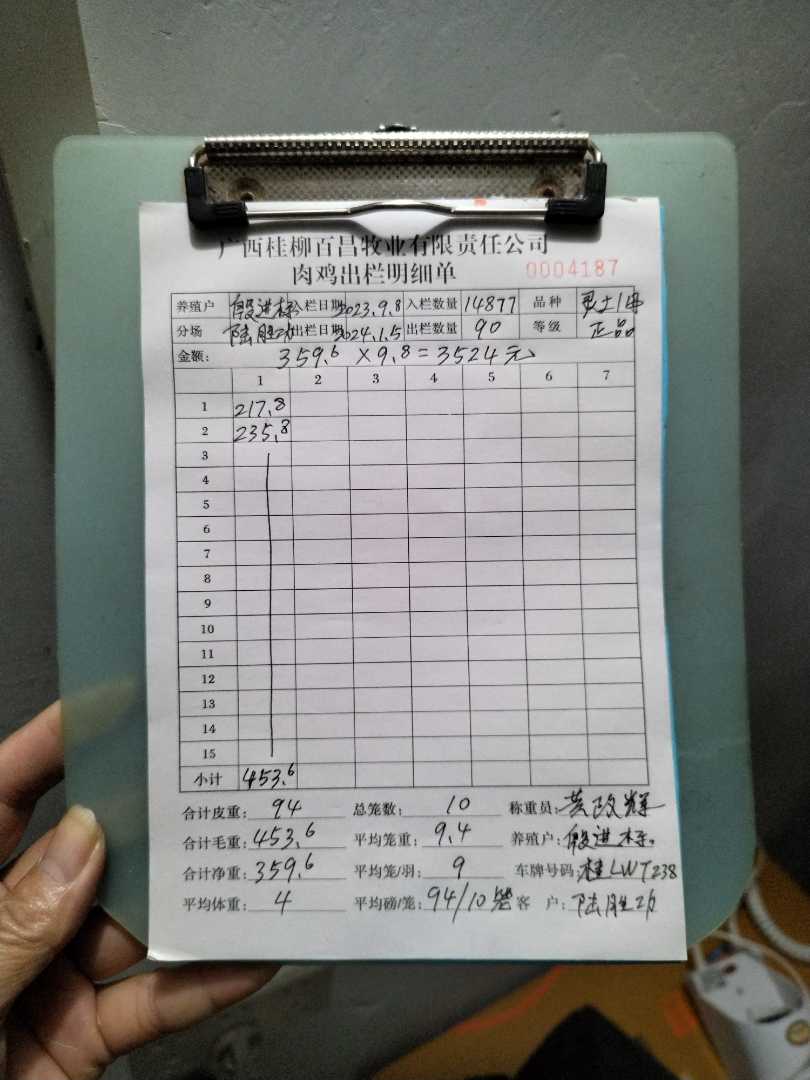 广西桂柳百昌牧业有限责任公司
肉鸡出栏明细单 0004187
养殖户 段进标 入栏日期 2023.9.8 入栏数量 14877 品种
分场 陆胜功 出栏日期 2024.1.5 出栏数量 90 等级 正品
金额: 359.6 × 9.8 = 3524 元
1 2 3 4 5 6 7
1 217.8
2 235.8
3
4
5
6
7
8
9
10
11
12
13
14
15
小计 453.6
合计皮重: 94 总笼数: 10 称重员: 黄政辉
合计毛重: 453.6 平均笼重: 9.4 养殖户: 段进标
合计净重: 359.6 平均笼/羽: 9 车牌号码: 桂LWT238
平均体重: 4 平均磅/笼: 94/10 客 户: 陆胜功